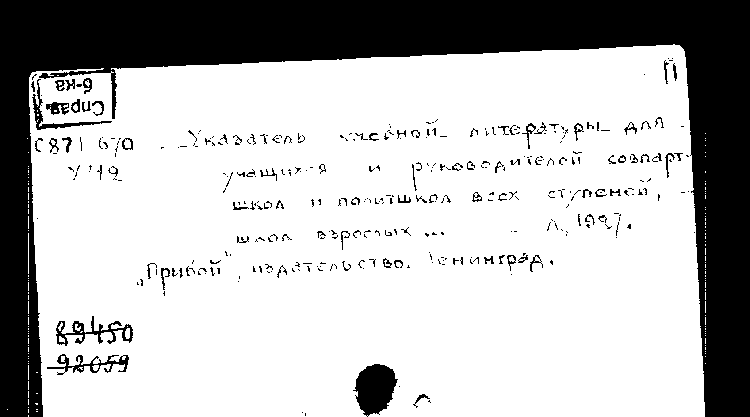 Справ.
б-ка
П
С871 670
У42
Указатель учебной литературы для
учащихся и руководителей совпарт-
школ и политшкол всех ступеней,
школ взрослых ... Л., 1927.
„Прибой", издательство. Ленинград.
89450
92059